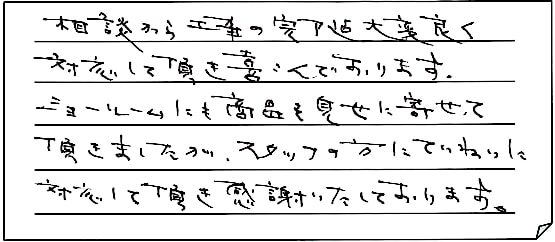 相談から工事の完了迄大変良く
対応して頂き喜こんでおります。
ショールームにも商品を見せに寄せて
頂きましたが、スタッフの方にていねいに
対応して頂き感謝いたしております。